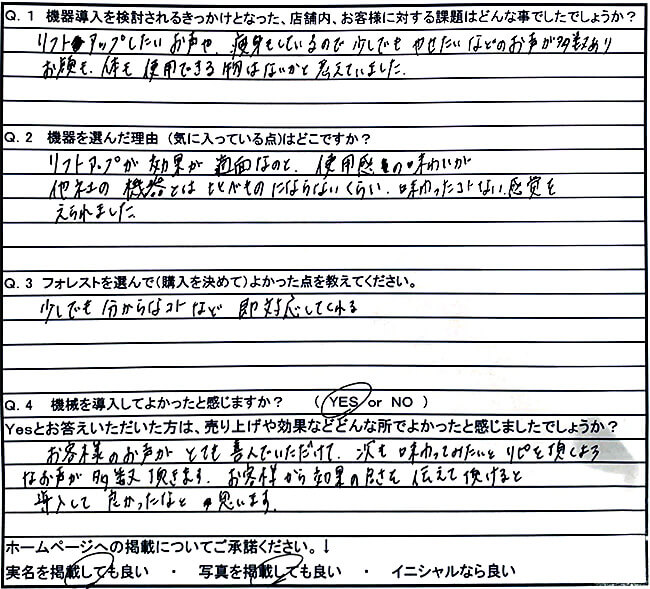 Q.1 機器導入を検討されるきっかけとなった、店舗内、お客様に対する課題はどんな事でしたでしょうか?
リフトアップしたいお声や、痩身もしているので少しでもやせたいなどのお声が多数あり
お顔も、体も使用できる物はないかと考えていました。
Q.2 機器を選んだ理由(気に入っている点)はどこですか?
リフトアップが効果が 適面なのと、使用感の味わいが
他社の機器とはくらべものにならないくらい、味わったコトない感覚を
えられました。
Q.3 フォレストを選んで(購入を決めて)よかった点を教えてください。
少しでも分からなコトなど 即対応してくれる
Q.4 機械を導入してよかったと感じますか? ( YES or NO )
Yesとお答えいただいた方は、売り上げや効果などどんな所でよかったと感じましたでしょうか?
お客様のお声が とても喜んでいただけて、次も味わってみたいとリピを頂くよう
なお声が多数頂きます。お客様から効果の良さを伝えて頂けると
導入して良かったなと思います。
ホームページへの掲載についてご承諾ください。↓
実名を掲載しても良い ・ 写真を掲載しても良い ・ イニシャルなら良い